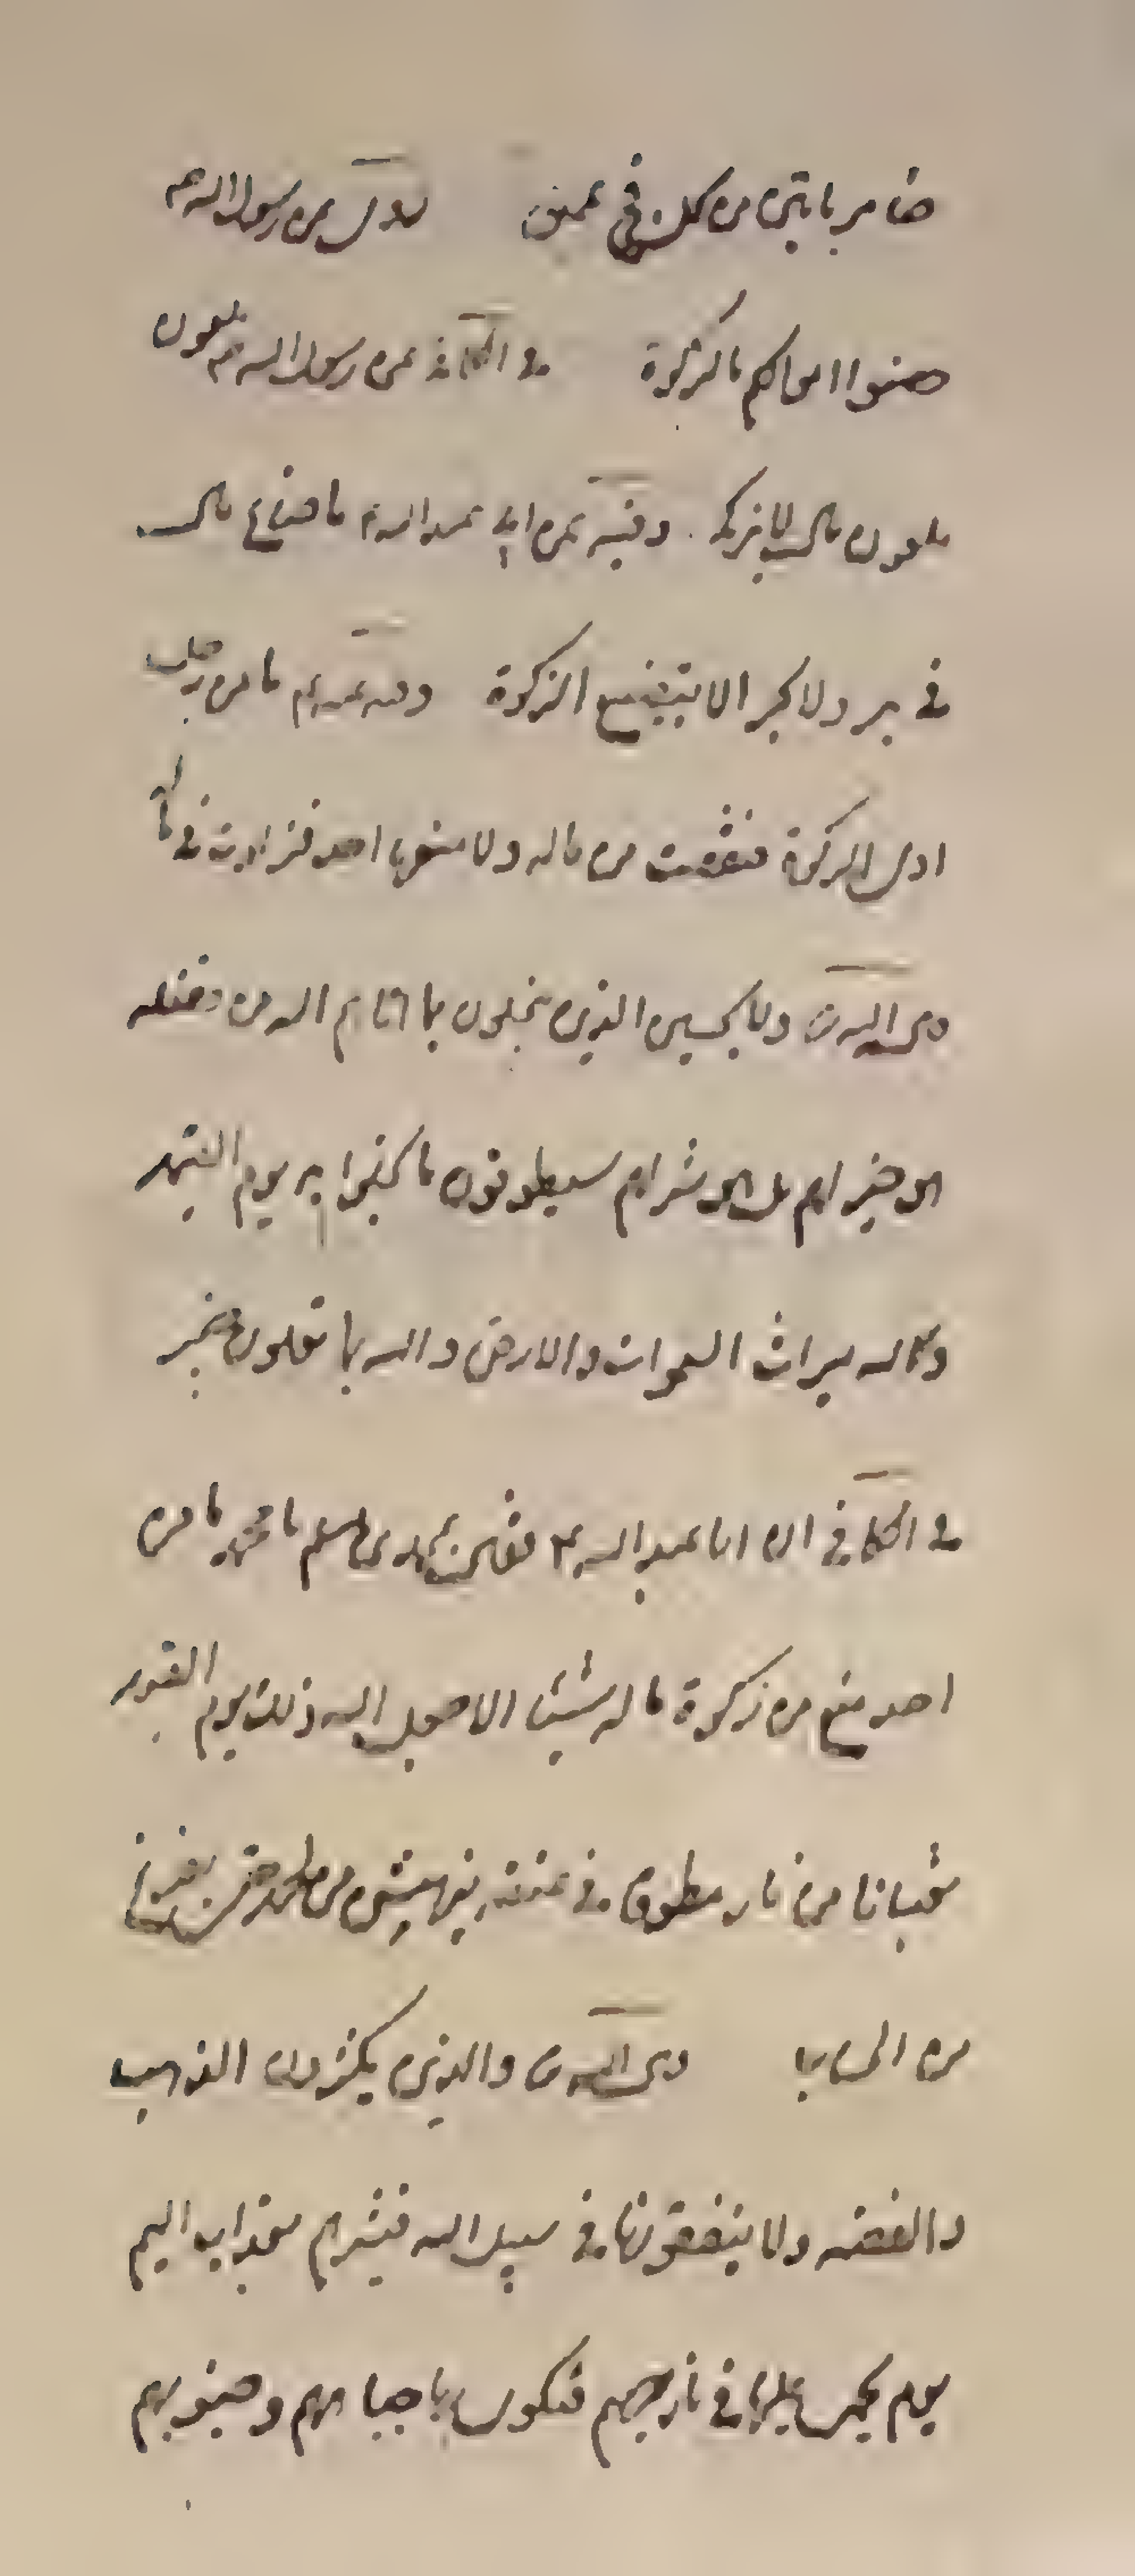 ضامر ياتين من كل فج عميق روى عن رسول الله ص
حصنوا اموالكم بالزكوة في الكافي عن رسول الله ص ملعون
ملعون مال لا يزكى وفيه عن ابي عبد الله ع ما ضاع مال
في بر ولا بحر الا بتضييع الزكوة وفيه عنه ع ما من رجل
ادى الزكوة فنقصت من ماله ولا منعها احد فزادت في ماله
قال الله ت ولا يحسبن الذين يبخلون بما اتاهم الله من فضله
هو خيرا لهم بل هو شر لهم سيطوقون ما بخلوا به يوم القيمة
ولله ميراث السموات والارض والله بما تعملون خبير
في الكافي ان ابا عبد الله ع قال لمحمد بن مسلم يا محمد ما من
احد منع من زكوة ماله شيئا الا جعل الله ذلك يوم القيمة
ثعبانا من نار مطوقا في عنقه ينهش من لحمه حتى يفرغ
من الحساب قال الله ت والذين يكنزون الذهب
والفضة ولا ينفقونها في سبيل الله فبشرهم بعذاب اليم
يوم يحمى عليها في نار جهنم فتكوى بها جباههم وجنوبهم